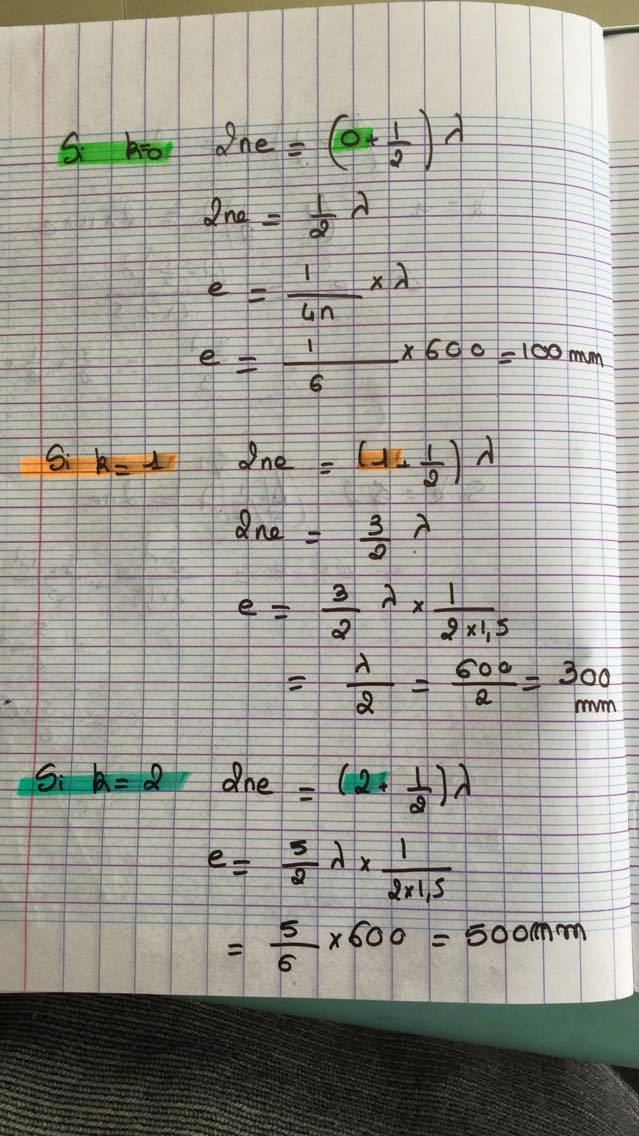 Si k=0 2ne = (0+ 1/2) λ
2ne = 1/2 λ
e = 1/4n × λ
e = 1/6 × 600 = 100 mm
Si k=1 2ne = (1+ 1/2) λ
2ne = 3/2 λ
e = 3/2 λ × 1/2×1,5
= λ/2 = 600/2 = 300 mm
Si k=2 2ne = (2+ 1/2) λ
e = 5/2 λ × 1/2×1,5
= 5/6 × 600 = 500mm